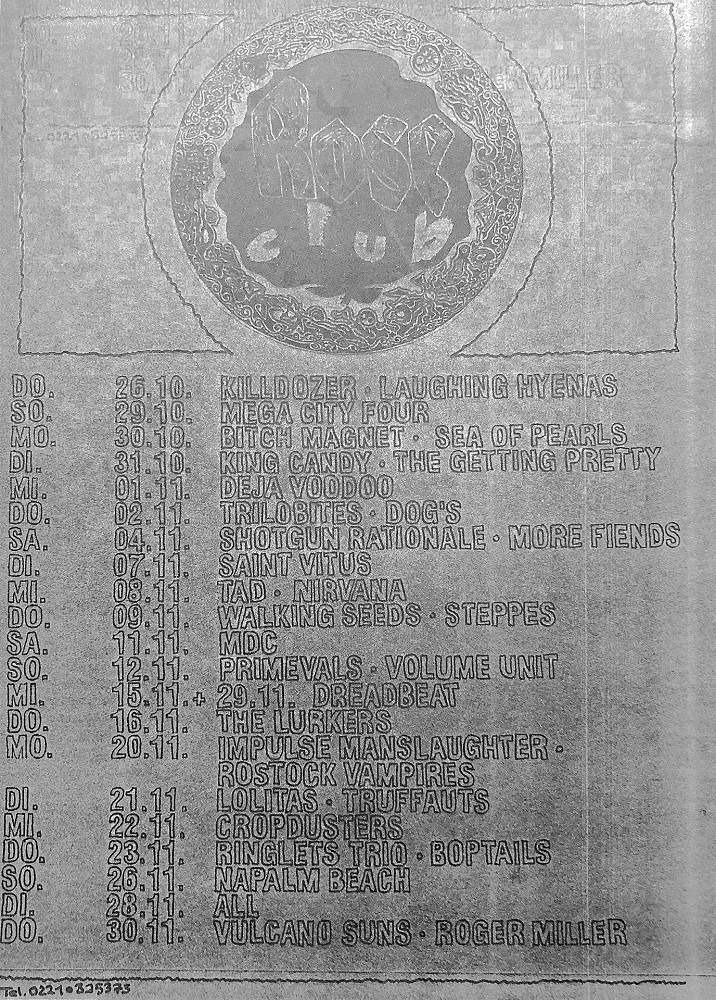 ROSE
club
DO. 26.10. KILLDOZER · LAUGHING HYENAS
SO. 29.10. MEGA CITY FOUR
MO. 30.10. BITCH MAGNET · SEA OF PEARLS
DI. 31.10. KING CANDY · THE GETTING PRETTY
MI. 01.11. DEJA VOODOO
DO. 02.11. TRILOBITES · DOG'S
SA. 04.11. SHOTGUN RATIONALE · MORE FIENDS
DI. 07.11. SAINT VITUS
MI. 08.11. TAD · NIRVANA
DO. 09.11. WALKING SEEDS · STEPPES
SA. 11.11. MDC
SO. 12.11. PRIMEVALS · VOLUME UNIT
MI. 15.11. + 29.11. DREADBEAT
DO. 16.11. THE LURKERS
MO. 20.11. IMPULSE MANSLAUGHTER ·
ROSTOCK VAMPIRES
DI. 21.11. LOLITAS · TRUFFAUTS
MI. 22.11. CROPDUSTERS
DO. 23.11. RINGLETS TRIO · BOPTAILS
SO. 26.11. NAPALM BEACH
DI. 28.11. ALL
DO. 30.11. VULCANO SUNS · ROGER MILLER
Tel. 0221